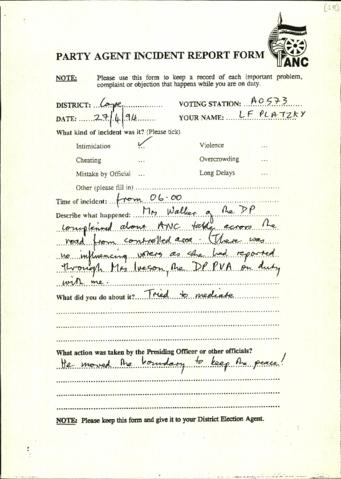 ANC
PARTY AGENT INCIDENT REPORT FORM
NOTE: Please use this form to keep a record of each important problem,
complaint or objection that happens while you are on duty.
DISTRICT: Cape VOTING STATION: A0573
DATE: 27/4/94 YOUR NAME: LF PLATZKY
What kind of incident was it? (Please tick)
Intimication ✓ Violence ...
Cheating ... Overcrowding ...
Mistake by Official ... Long Delays ...
Other (please fill in)
Time of incident: from 06.00
Describe what happened: Mrs Walker of the DP
complained about ANC table across the
road from controlled area. (There was
no influencing voters as she had reported
through Mrs Iveson, the DP PVA on duty
with me.
What did you do about it? Tried to mediate
What action was taken by the Presiding Officer or other officials?
He moved the boundary to keep the peace!
NOTE: Please keep this form and give it to your District Election Agent.